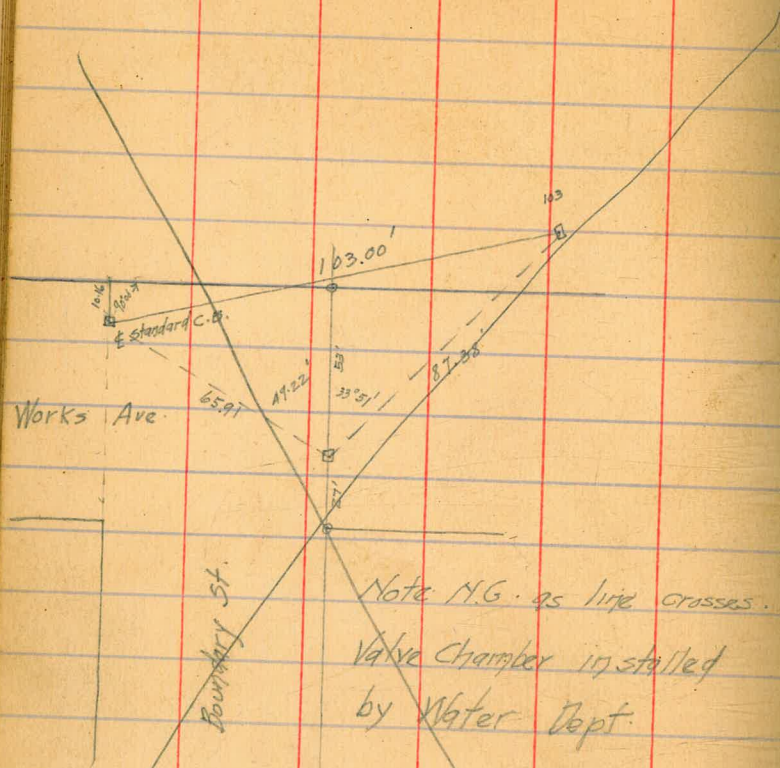 103
103.00'
10.16
℄ Standard C.B.
53'
87.38'
49.22'
33°51'
65.91
Works Ave.
27'
Boundary St.
Note N.G. as line crosses.
Valve Chamber installed
by Water Dept.